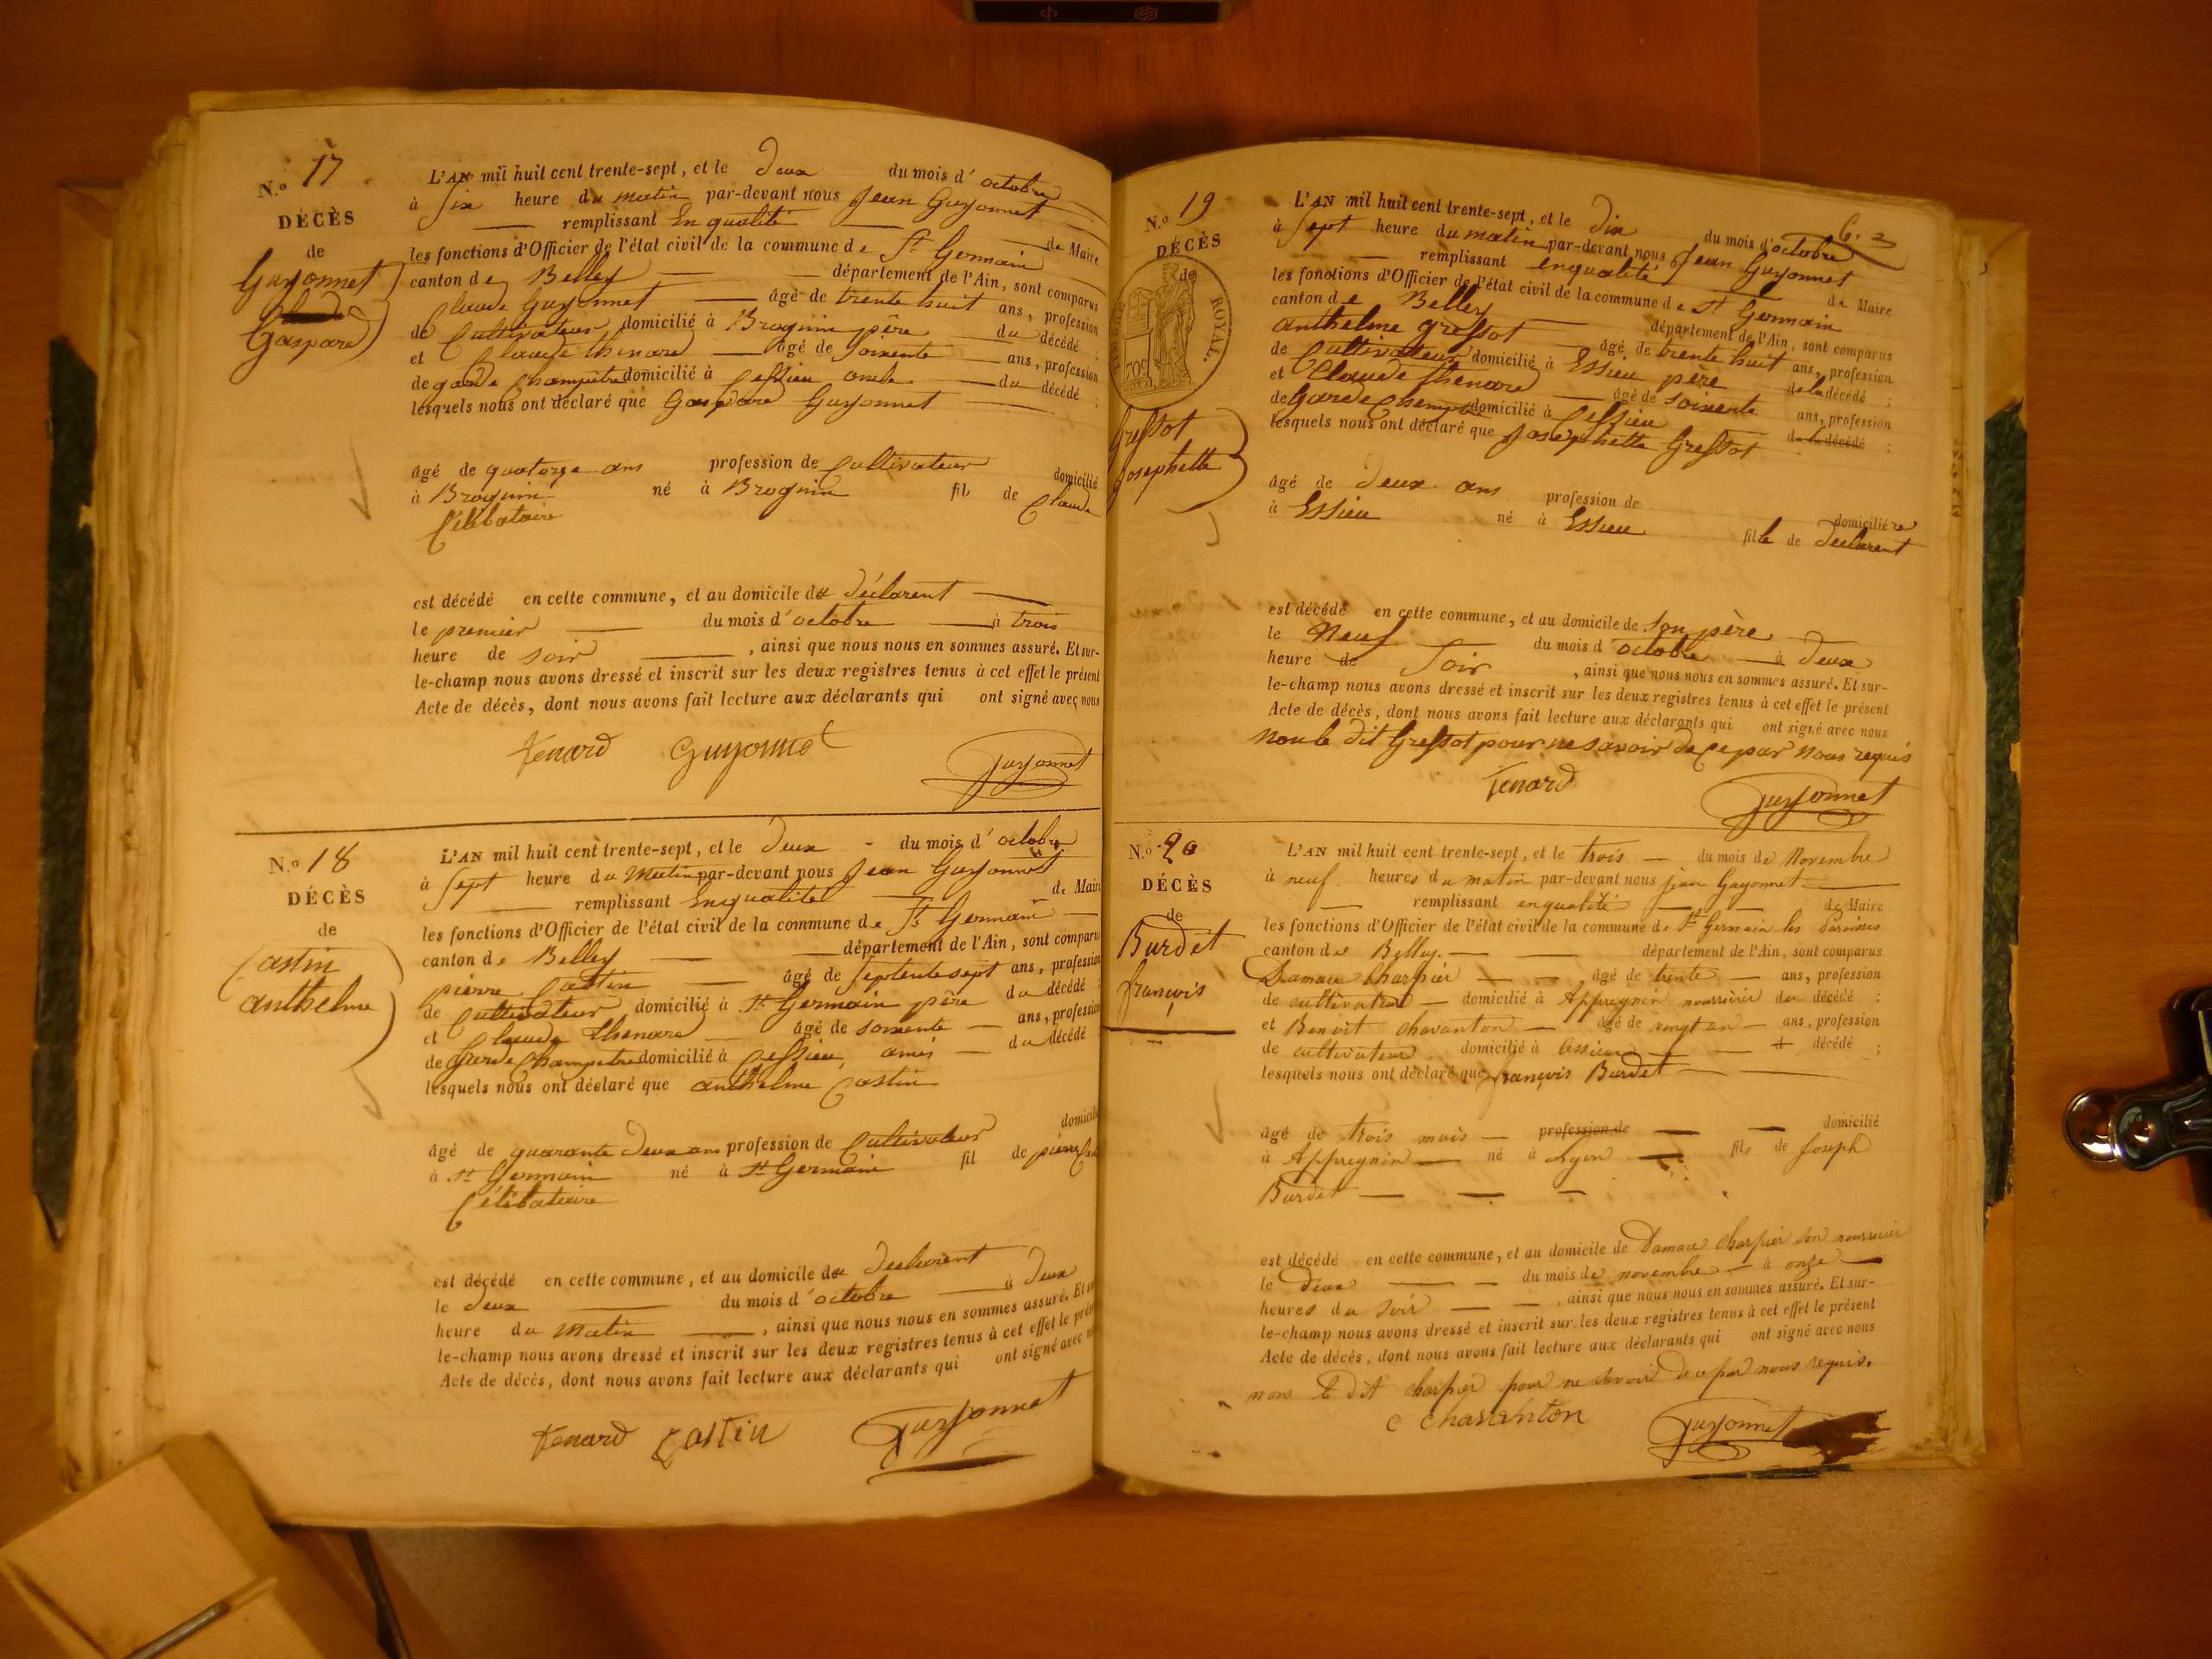 N.º 17
DÉCÈS
de
Guyonnet
Gaspard
L'AN mil huit cent trente-sept, et le Deux du mois d'octobre
à Six heure du matin par-devant nous Jean Guyonnet
remplissant En qualité de Maire
les fonctions d'Officier de l'état civil de la commune de St Germain
canton de Belley département de l'Ain, sont comparus
Claude Guyonnet âgé de trente huit ans, profession
de Cultivateur domicilié à Brognin père du décédé ;
et Claude thenard âgé de Soixente ans, profession
de garde Champêtre domicilié à Cessieu oncle du décédé ;
lesquels nous ont déclaré que Gaspard Guyonnet
âgé de quatorze ans profession de Cultivateur domicilié
à Brognin né à Brognin fils de Claude
Célibataire
est décédé en cette commune, et au domicile du déclarent
le premier du mois d'octobre à trois
heure de soir , ainsi que nous nous en sommes assuré. Et sur-
le-champ nous avons dressé et inscrit sur les deux registres tenus à cet effet le présent
Acte de décès, dont nous avons fait lecture aux déclarants qui ont signé avec nous
Tenard Guyonnet Guyonnet
N.º 18
DÉCÈS
de
Castin
anthelme
L'AN mil huit cent trente-sept, et le Deux du mois d'octobre
à Sept heure du Matin par-devant nous Jean Guyonnet
remplissant En qualité de Maire
les fonctions d'Officier de l'état civil de la commune de St Germain
canton de Belley département de l'Ain, sont comparus
pierre Castin âgé de Septente sept ans, profession
de Cultivateur domicilié à St Germain père du décédé ;
et Claude thenard âgé de soixente ans, profession
de Garde Champetre domicilié à Cessieu amis du décédé
lesquels nous ont déclaré que anthelme Castin
âgé de quarante Deux ans profession de Cultivateur domicilié
à St Germain né à St Germain fil de pierre
Célibataire
est décédé en cette commune, et au domicile du Declarent
le Deux du mois d'octobre à Deux
heure du Matin , ainsi que nous nous en sommes assuré. Et
le-champ nous avons dressé et inscrit sur les deux registres tenus à cet effet le
Acte de décès, dont nous avons fait lecture aux déclarants qui ont signé avec
Tenard Castin Guyonnet
6. 2
N.º 19
DÉCÈS
de
TIMBRE ROYAL.
Gressot
Josephette
L'AN mil huit cent trente-sept, et le Dix du mois d'octobre
à Sept heure du matin par-devant nous Jean Guyonnet
remplissant en qualité de Maire
les fonctions d'Officier de l'état civil de la commune de St Germain
canton de Belley département de l'Ain, sont comparus
anthelme Gressot âgé de trente huit ans, profession
de Cultivateur domicilié à Essieu père de la décédé ;
et Claude thenard âgé de soixente ans, profession
de Garde Champetre domicilié à Cessieu de la décédé ;
lesquels nous ont déclaré que Josephette Gressot
âgé de Deux ans profession de domicilié
à Essieu né à Essieu fille de declarent
est décédé en cette commune, et au domicile de Son père
le Neuf du mois d'octobre à Deux
heure de Soir , ainsi que nous nous en sommes assuré. Et sur-
le-champ nous avons dressé et inscrit sur les deux registres tenus à cet effet le présent
Acte de décès, dont nous avons fait lecture aux déclarants qui ont signé avec nous
Non le dit Gressot pour ne savoir de ce par Nous requis
Tenard Guyonnet
N.º 20
DÉCÈS
de
Burdet
françois
L'AN mil huit cent trente-sept, et le trois du mois de Novembre
à neuf heures du matin par-devant nous jean Guyonnet
remplissant en qualité de Maire
les fonctions d'Officier de l'état civil de la commune de St Germain les Paroisses
canton de Belley. département de l'Ain, sont comparus
Damace Charpier âgé de trente ans, profession
de cultivateur domicilié à Appregnin nourricier du décédé ;
et Benoit chavanton âgé de vingt an ans, profession
de cultivateur domicilié à Cessieu d décédé ;
lesquels nous ont déclaré que françois Burdet
âgé de trois mois profession de domicilié
à Appregnin né à Lyon fils de Joseph
Burdet
est décédé en cette commune, et au domicile de Damace Charpier son nourricier
le Deux du mois de novembre à onze
heures du soir , ainsi que nous nous en sommes assuré. Et sur-
le-champ nous avons dressé et inscrit sur les deux registres tenus à cet effet le présent
Acte de décès, dont nous avons fait lecture aux déclarants qui ont signé avec nous
non le dit charpier pour ne savoir de ce par nous requis.
chavanton Guyonnet